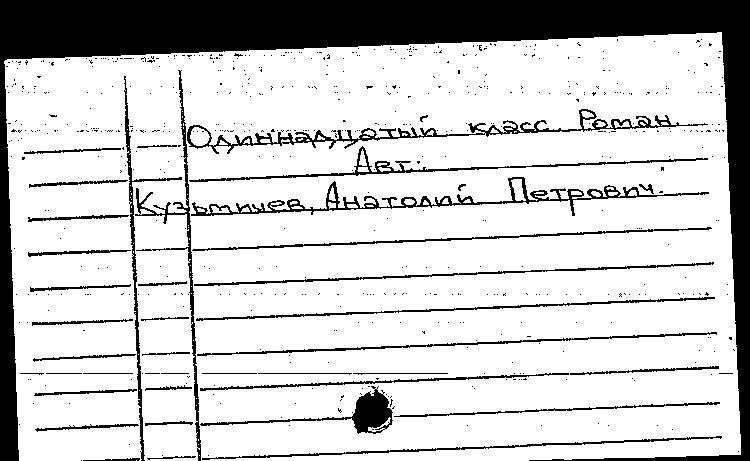 Одиннадцатый класс. Роман.
Авт.:
Кузьмичев, Анатолий Петрович.